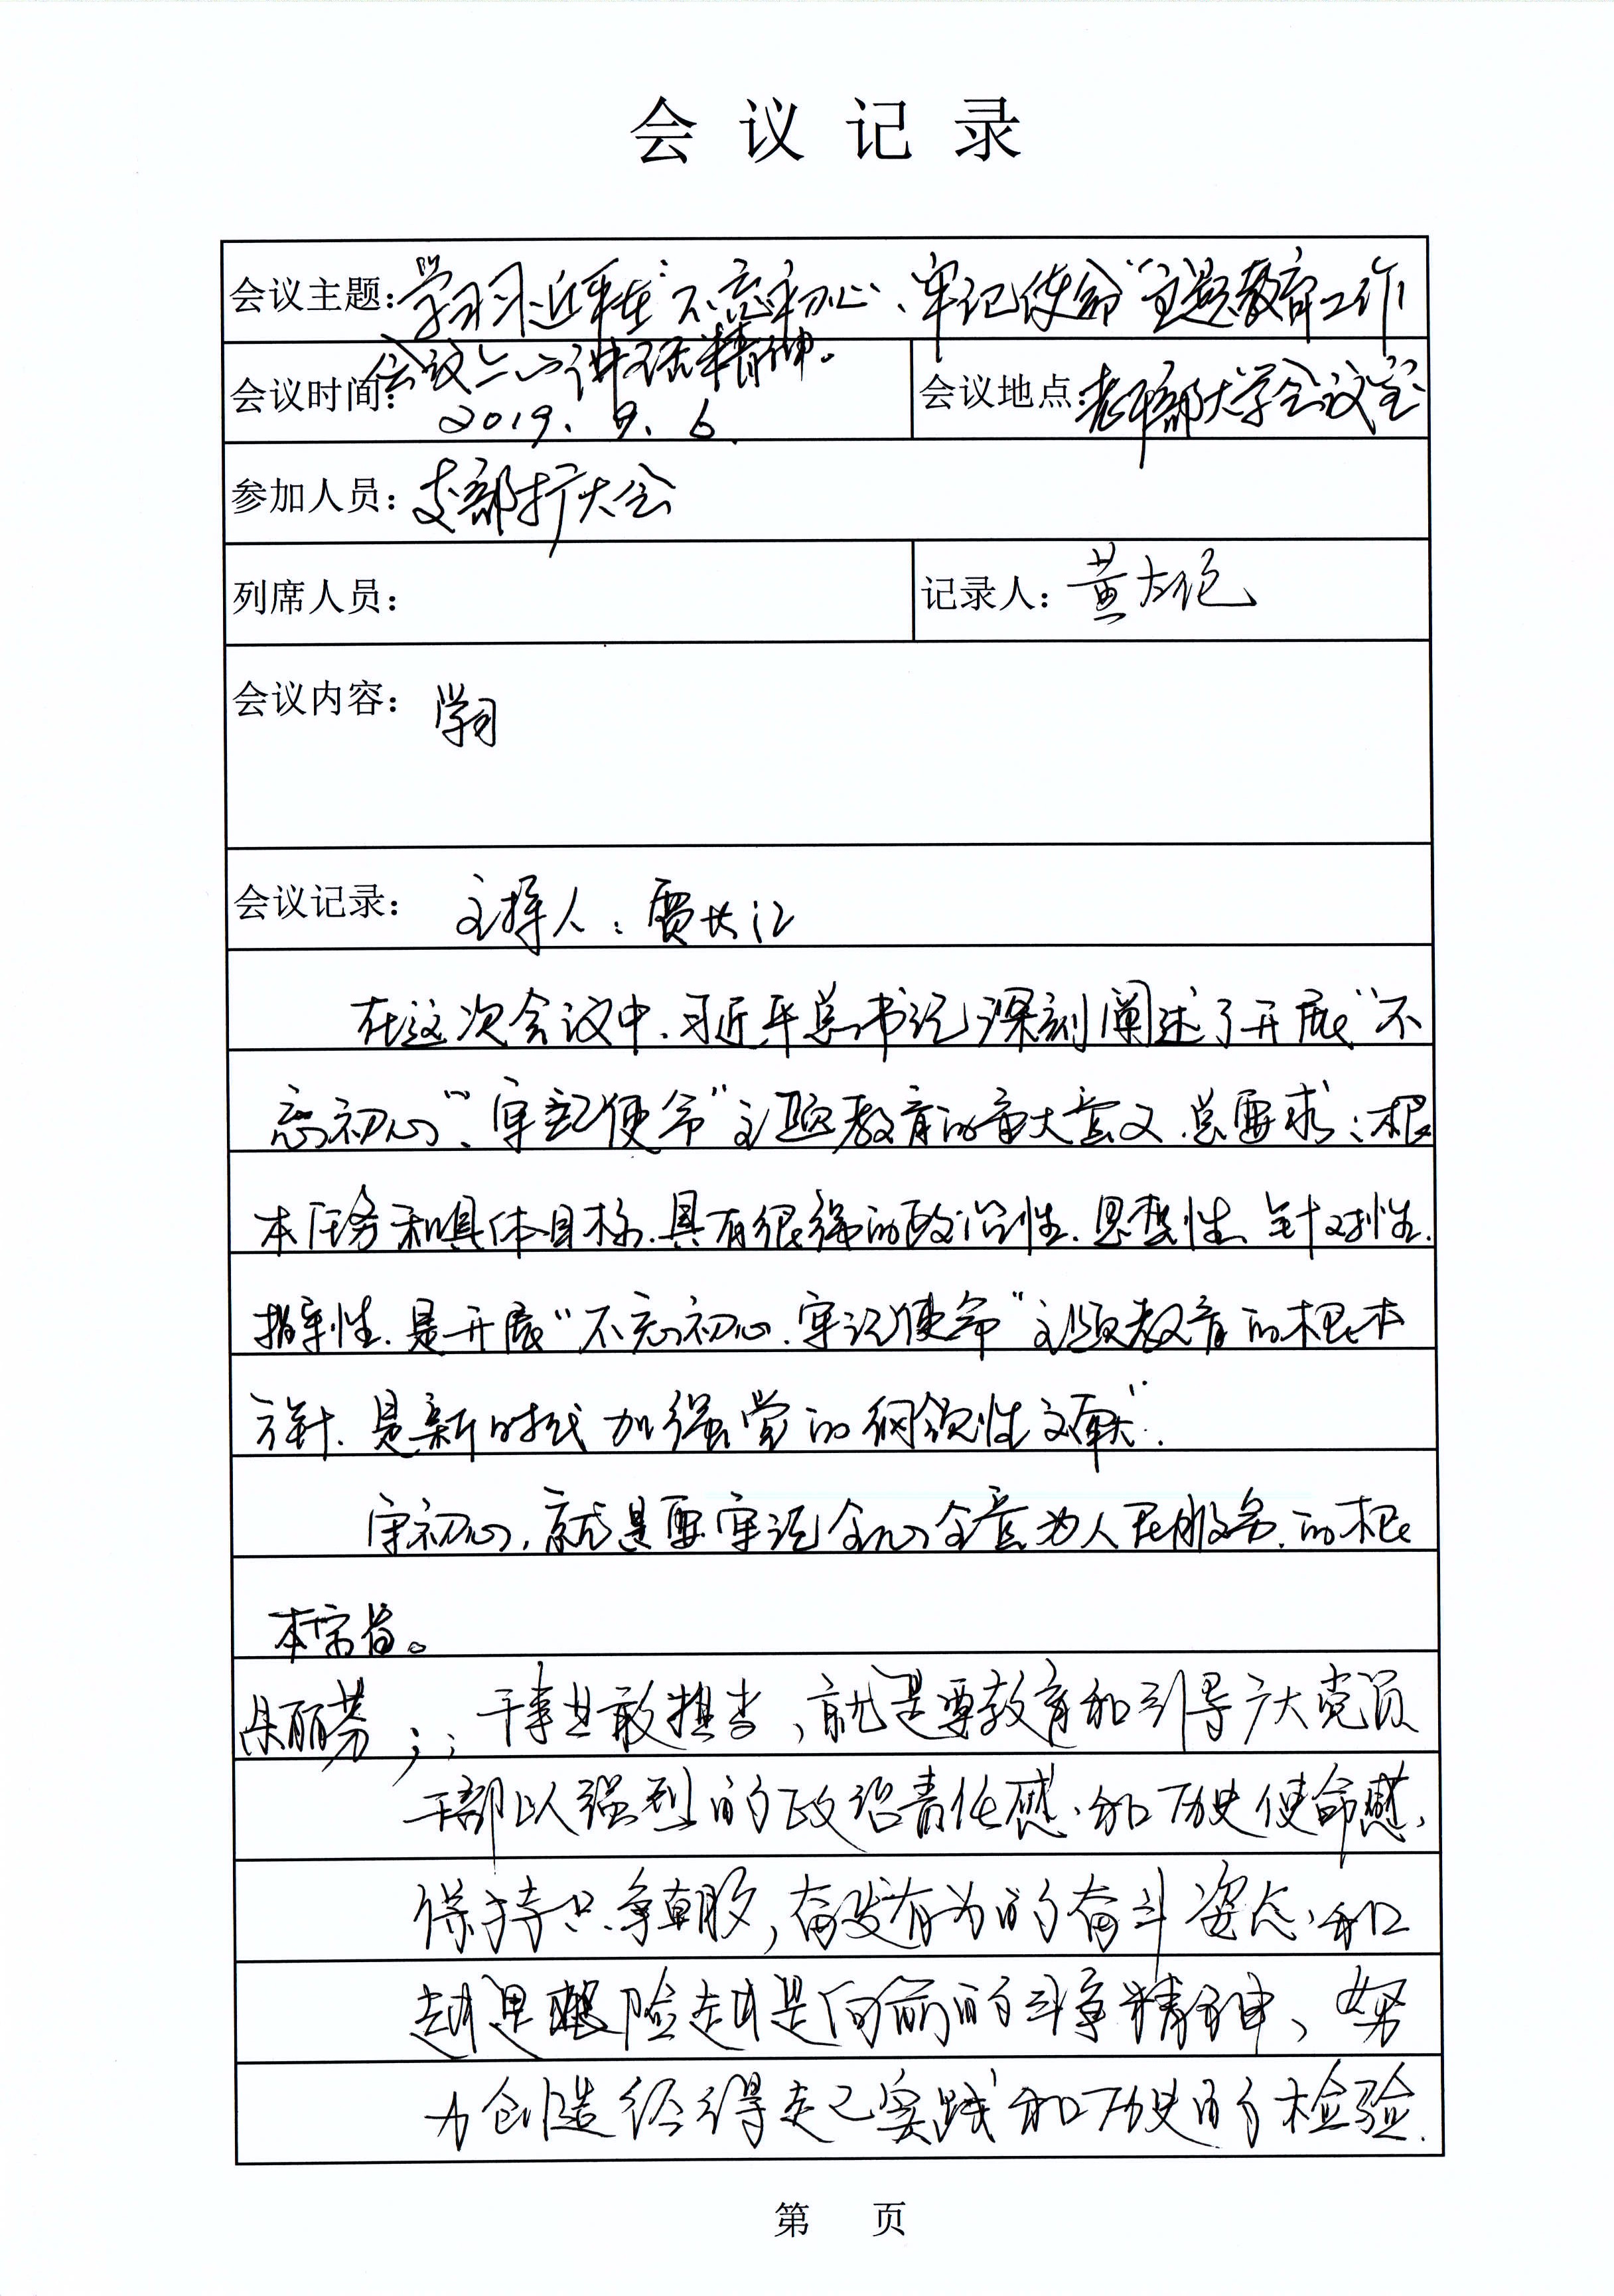 会议记录
会议主题：学习习近平在“不忘初心、牢记使命”主题教育工作
会议上的讲话精神。
会议时间：2019.9.6.
会议地点：老干部大学会议室
参加人员：支部扩大会
列席人员：
记录人：黄大纶
会议内容：学习
会议记录：主持人：贾长江
在这次会议中、习近平总书记深刻阐述了开展“不
忘初心”、牢记使命”主题教育的重大意义、总要求；根
本任务和具体目标、具有很强的政治性、思想性、针对性、
指导性、是开展“不忘初心、牢记使命”主题教育的根本
方针、是新时代加强党的纲领性文献”.
守初心，就是要牢记全心全意为人民服务、的根
本宗旨。
丽芳；：干事业敢担当，就是要教育和引导广大党员
干部以强烈的政治责任感、和历史使命感，
保持只争朝夕，奋发有为的奋斗姿态、和
越是艰险越是向前的斗争精神、努
力创造经得走已实践和历史的检验.
第 页